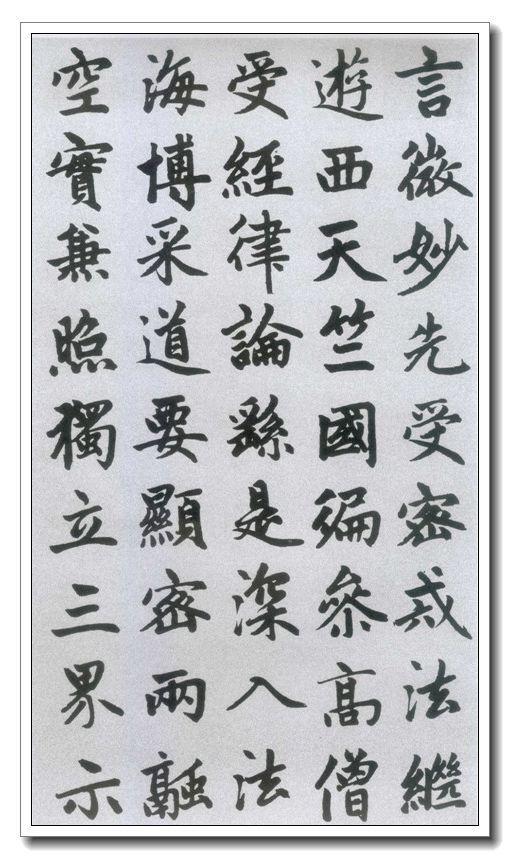 言微妙先受密戒法繼
遊西天竺國徧參高僧
受經律論繇是深入法
海博采道要顯密兩融
空實兼照獨立三界示